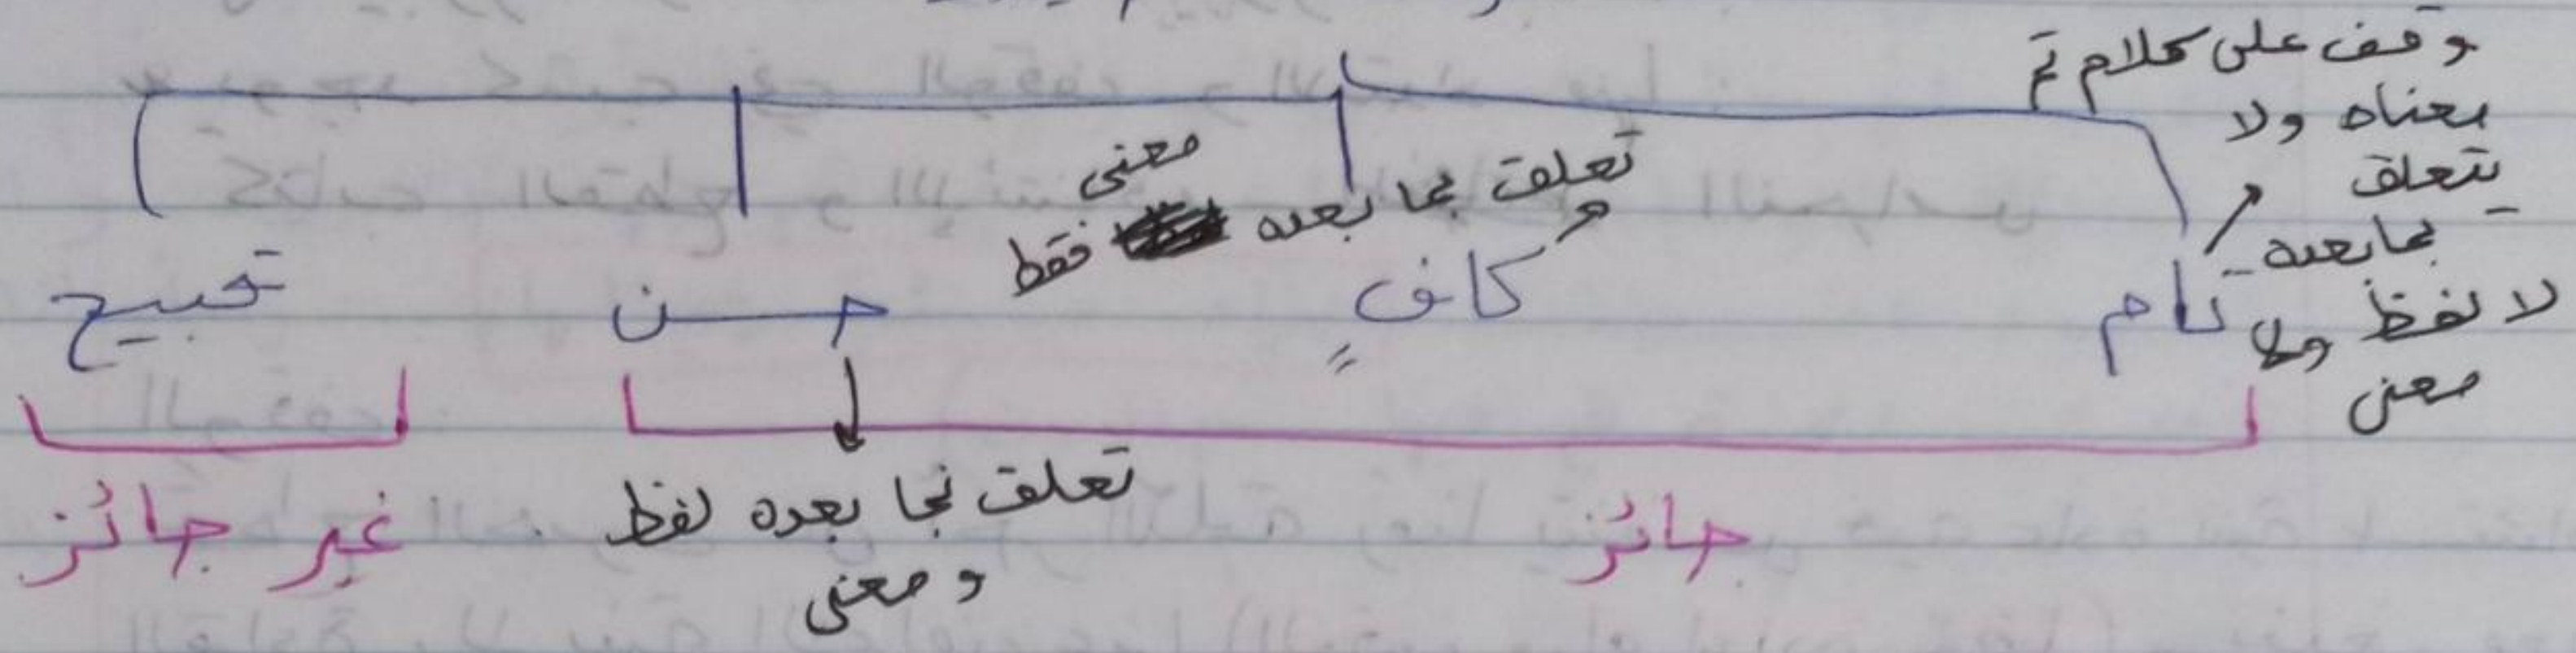 وقف على كلام تم
معناه ولا
يتعلق
بما بعده
لا لفظ ولا
معنى
تام
تعلق بما بعده معنى فقط
كافٍ
حسن
قبيح
تعلق بما بعده لفظ
ومعنى
جائز
غير جائز